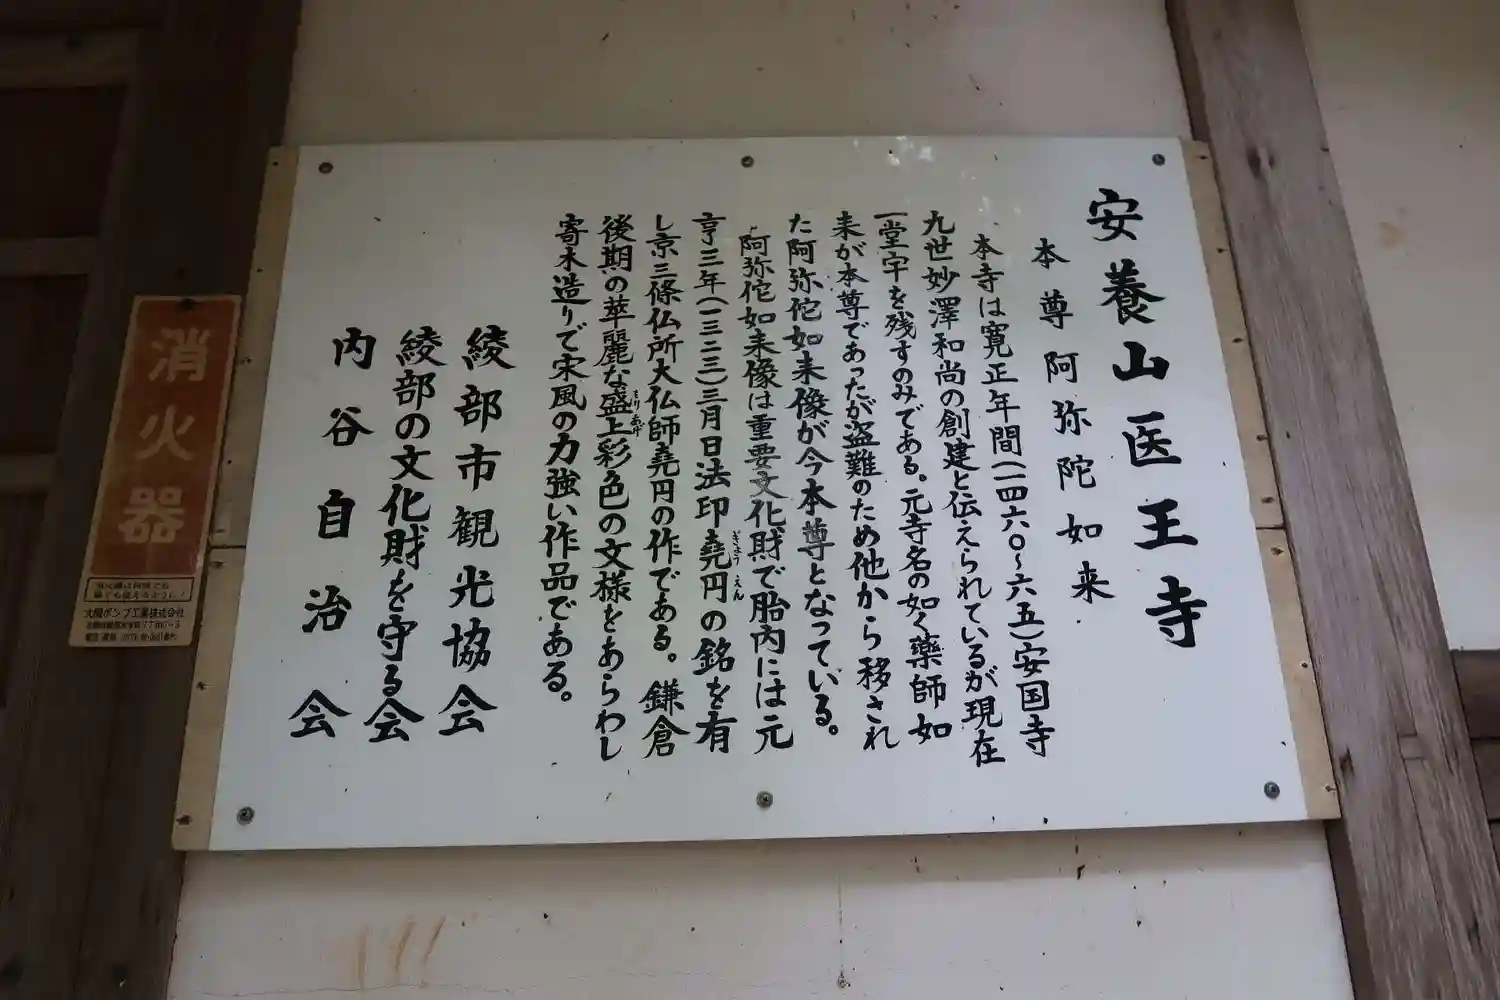 安養山医王寺
本尊阿弥陀如来
本寺は寛正年間(一四六〇〜六五)安国寺
九世妙澤和尚の創建と伝えられているが現在
一堂宇を残すのみである。元寺名の如く薬師如
来が本尊であったが盗難のため他から移され
た阿弥佗如来像が今本尊となっている。
阿弥佗如来像は重要文化財で胎内には元
亨三年(一三二三)三月日法印堯円の銘を有
ぎょうえん
し京三條仏所大仏師堯円の作である。鎌倉
後期の華麗な盛上彩色の文様をあらわし
もりあげ
寄木造りで宋風の力強い作品である。
綾部市観光協会
綾部の文化財を守る会
内谷自治会
消火器